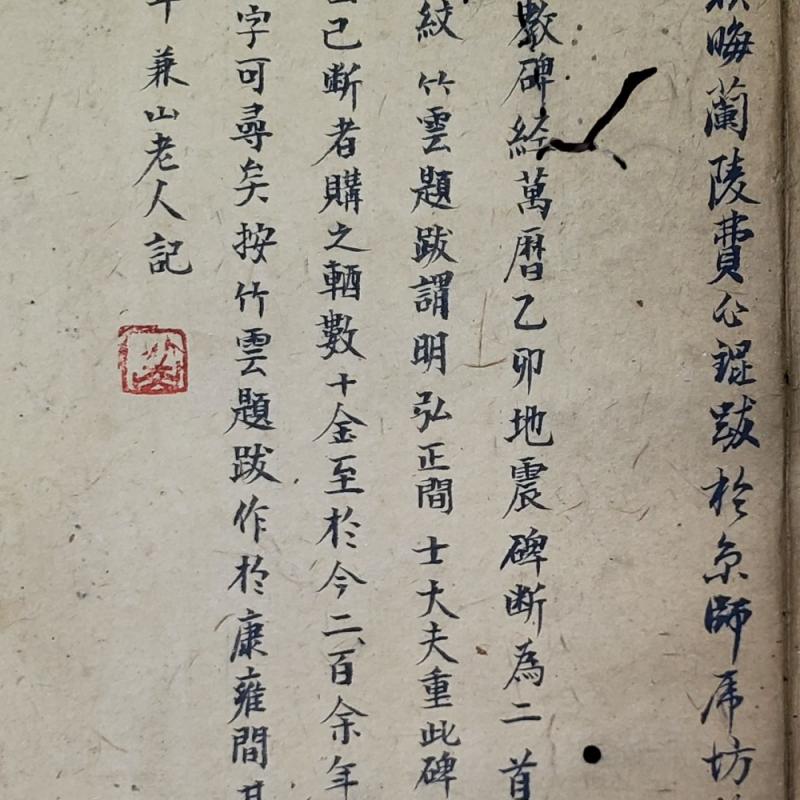 晦蘭陵費公錕跋於京師席坊
數碑經萬曆乙卯地震碑斷為二首
紋竹雲題跋謂明弘正間士大夫重此碑
已斷者購之輒數十金至於今二百余年
字可尋矣按竹雲題跋作於康雍間
年兼山老人記